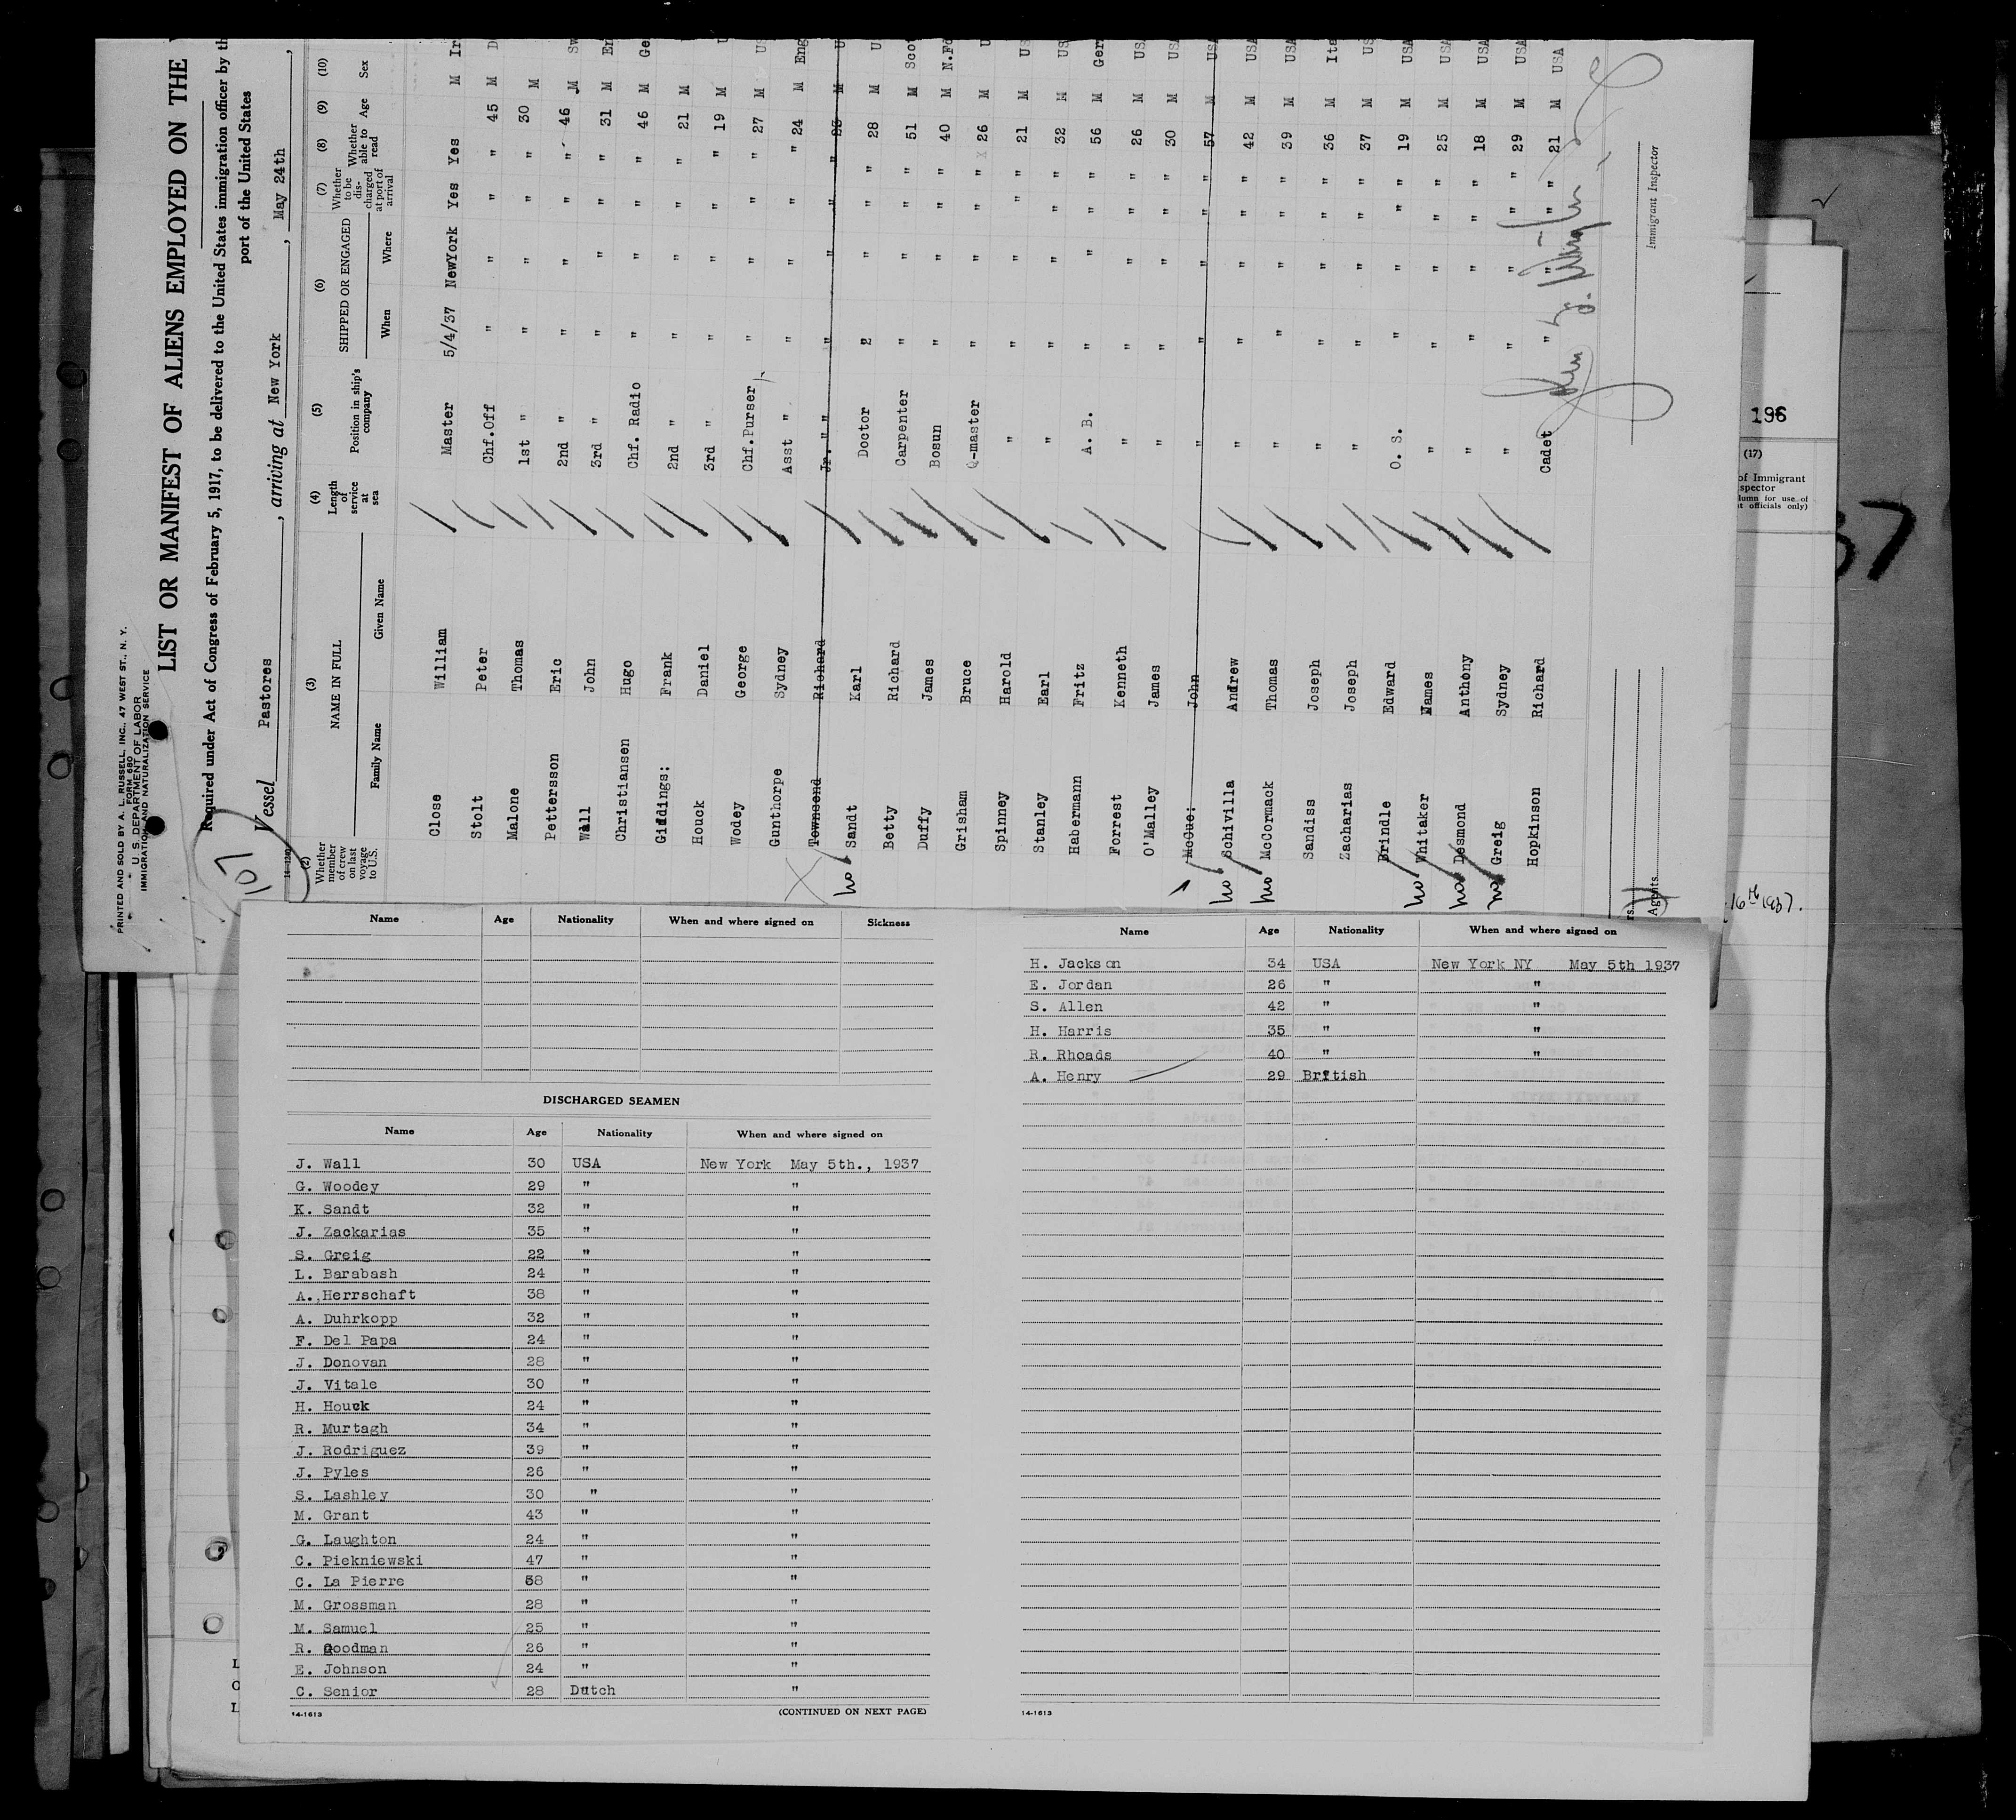 PRINTED AND SOLD BY A. L. RUSSELL, INC., 47 WEST ST., N. Y.
FORM 680
U. S. DEPARTMENT OF LABOR
IMMIGRATION AND NATURALIZATION SERVICE
LIST OR MANIFEST OF ALIENS EMPLOYED ON THE
Required under Act of Congress of February 5, 1917, to be delivered to the United States immigration officer by th
port of the United States
Vessel Pastores, arriving at New York, May 24th,
107
14-1240
(2) (3) (4) (5) (6) (7) (8) (9) (10)
Whether member of crew on last voyage to U.S. NAME IN FULL Family Name Given Name Length of service at sea Position in ship's company SHIPPED OR ENGAGED When Where Whether to be discharged at port of arrival Whether able to read Age Sex
Close William Master 5/4/37 NewYork Yes Yes M Ir
Stolt Peter Chf.Off " " " " 45 M D
Malone Thomas 1st " " " " " 30 M
Pettersson Eric 2nd " " " " " 46 M Sw
Wall John 3rd " " " " " 31 M En
Christiansen Hugo Chf. Radio " " " " 46 M Ge
Giddings: Frank 2nd " " " " " 21 M
Houck Daniel 3rd " " " " " 19 M U
Wodey George Chf.Purser " " " " 27 M US
Gunthorpe Sydney Asst " " " " " 24 M Eng
Townsend Richard Jr. " " " " " " M U
no Sandt Karl Doctor 2 " " " 28 M U
Betty Richard Carpenter " " " " 51 M Scot
Duffy James Bosun " " " " 40 M N.Fd
Grisham Bruce Q-master " " " " 26 M U
Spinney Harold " " " " " 21 M US
Stanley Earl " " " " " 32 M US
Habermann Fritz A. B. " " " " 56 M Ger
Forrest Kenneth " " " " " 26 M US
O'Malley James " " " " " 30 M USA
McCue: John " " " " " 57 M USA
no Schivilla Andrew " " " " " 42 M USA
no McCormack Thomas " " " " " 39 M USA
Sandiss Joseph " " " " " 36 M Ita
Zacharias Joseph " " " " " 37 M US
Brindle Edward O. S. " " " " 19 M USA
no Whitaker James " " " " " 25 M USA
no Desmond Anthony " " " " " 18 M USA
no Greig Sydney " " " " " 29 M USA
Hopkinson Richard Cadet " " " " 21 M USA
Immigrant Inspector
Agents.
196
(17)
of Immigrant
spector
lumn for use of
t officials only)
37
16th 1937.
Name Age Nationality When and where signed on Sickness
DISCHARGED SEAMEN
Name Age Nationality When and where signed on
J. Wall 30 USA New York May 5th., 1937
G. Woodey 29 " "
K. Sandt 32 " "
J. Zackarias 35 " "
S. Greig 22 " "
L. Barabash 24 " "
A. Herrschaft 38 " "
A. Duhrkopp 32 " "
F. Del Papa 24 " "
J. Donovan 28 " "
J. Vitale 30 " "
H. Houck 24 " "
R. Murtagh 34 " "
J. Rodriguez 39 " "
J. Pyles 26 " "
S. Lashley 30 " "
M. Grant 43 " "
G. Laughton 24 " "
C. Piekniewski 47 " "
C. La Pierre 58 " "
M. Grossman 28 " "
M. Samuel 25 " "
R. Goodman 26 " "
E. Johnson 24 " "
C. Senior 28 Dutch "
14-1613 (CONTINUED ON NEXT PAGE)
Name Age Nationality When and where signed on
H. Jackson 34 USA New York NY May 5th 1937
E. Jordan 26 " "
S. Allen 42 " "
H. Harris 35 " "
R. Rhoads 40 " "
A. Henry 29 British
14-1613